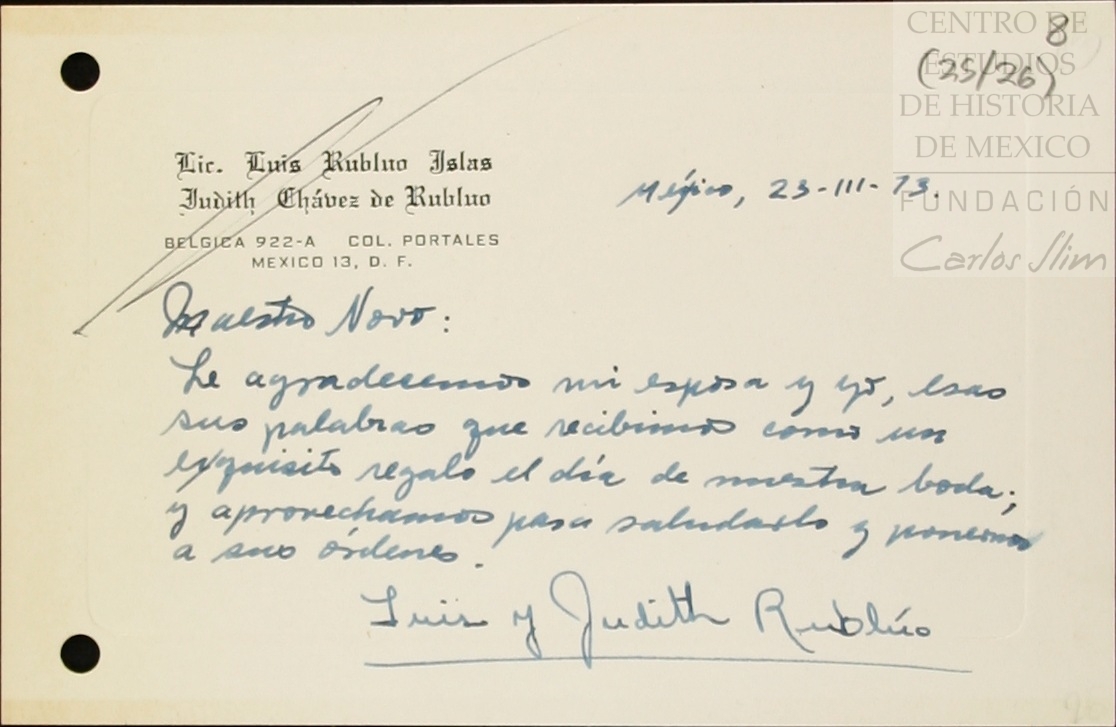 CENTRO DE
ESTUDIOS
DE HISTORIA
DE MEXICO
FUNDACIÓN
Carlos Slim
8
(25/26)
Lic. Luis Rubluo Islas
Judith Chávez de Rubluo
BELGICA 922-A COL. PORTALES
MEXICO 13, D. F.
México, 23-III-73.
Maestro Novo:
Le agradecemos mi esposa y yo, esas
sus palabras que recibimos como un
exquisito regalo el día de nuestra boda;
y aprovechamos para saludarlo y ponernos
a sus órdenes.
Luis y Judith Rublúo